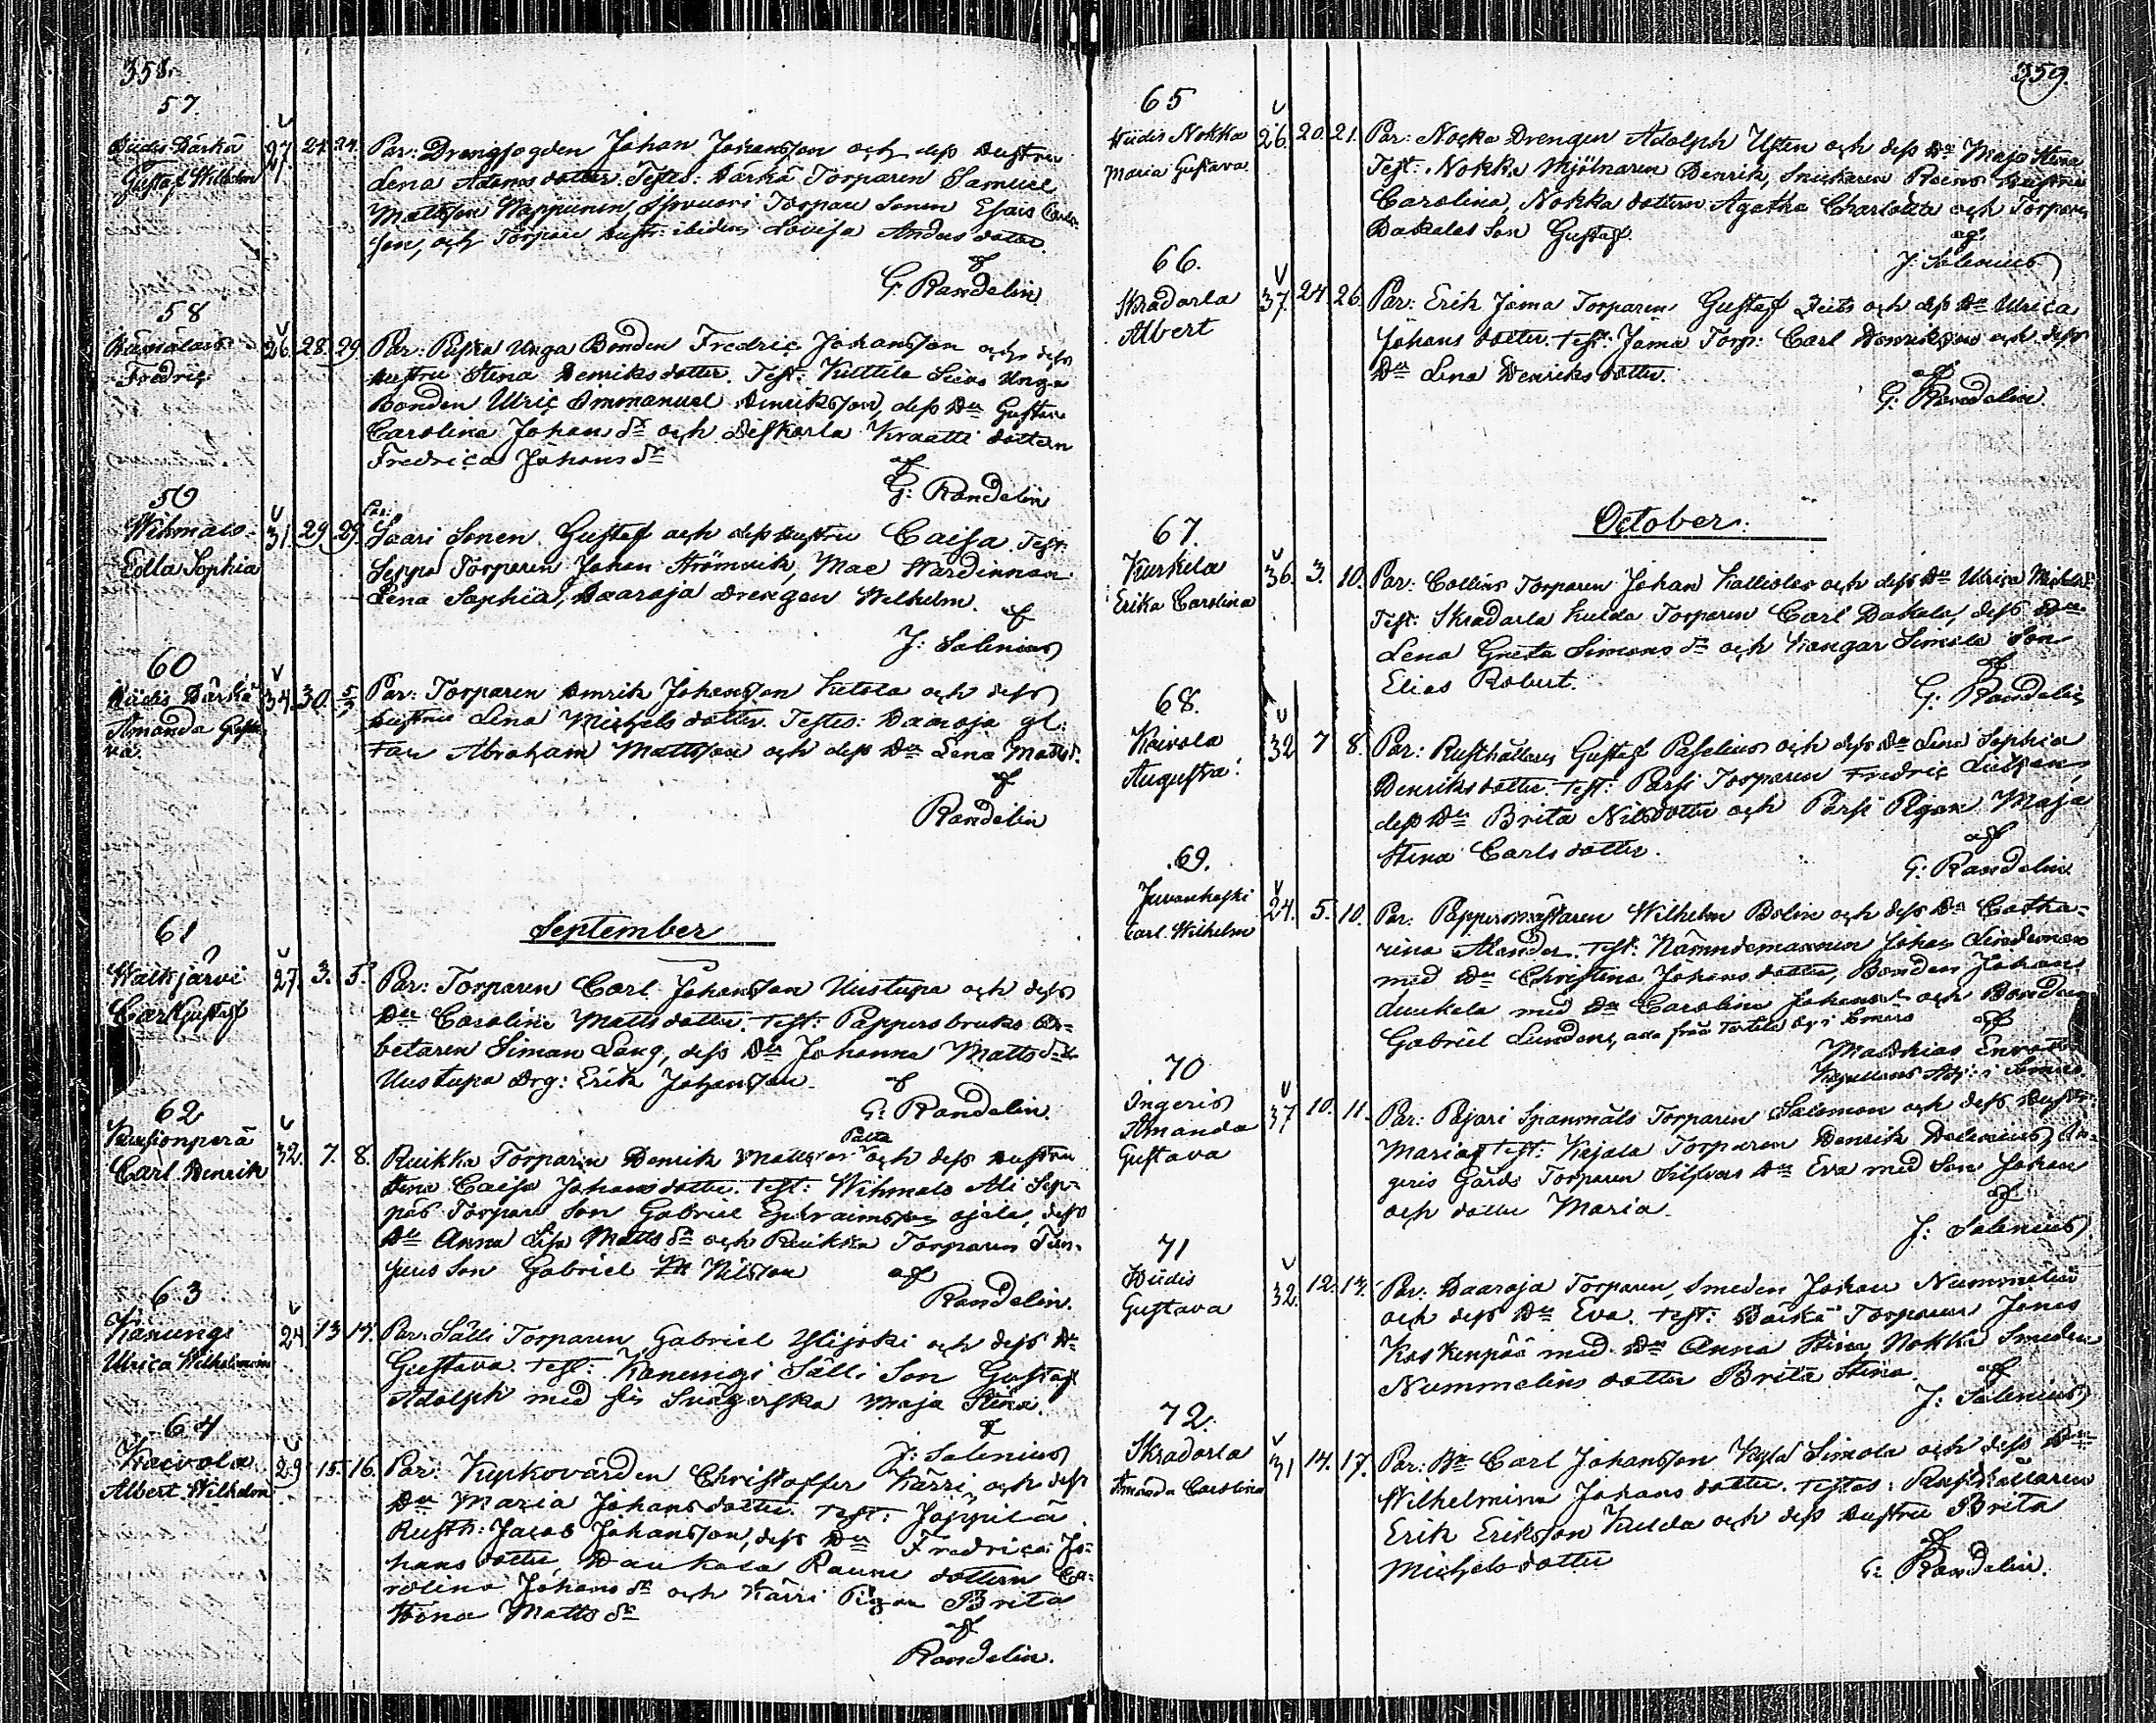 358.
57.
Gustaf Wilhelm
27. 24. 24.
Par: Drengfogden Johan Johansson och dess Hustru
Lena Adams dotter. Testes: Härkä Torparen Samuel
Mattsson Torpare Sonen Esaias
son, och Torpare hustr: ibidem Lovisa Anders dotter.
af
G: Randelin
58
Fredric
26. 28. 29.
Par: Unga Bonden Fredric Johansson och dess
hustru Stina Henriks dotter. Test: Kuttila Unga
Bonden Ulric Immanuel Henriksson, dess Hu Gustava
Carolina Johans dr och Kraatti dottern
Fredrica Johans dr
af
G: Randelin
59
Wihmalo
Edla Sophia
31. 29. 29.
Par:
Saari Sonen Gustaf och dess hustru Caisa Test:
Seppä Torparen Johan Strömvik, Mac Wärdinnan
Lena Sophia, Haaroja drengen Wilhelm.
af
J: Salenius
60
Hiidis Härkä
Amanda Gusta
va.
34. 30. 5/9
Par: Torparen Henrik Johansson Ketola och dess
hustru Lina Michels dotter. Testes: Haaroja gl:
Far Abraham Mattsson och dess Hu Lena Matts d.
af
Randelin
September
61
Waikjärvi
Carl Gustaf
27. 3. 5.
Par: Torparen Carl Johansson Uustupa och dess
Hu Carolina Matts dotter. Test: Pappersbruks Ar-
betaren Simon Lang, dess Hu Johanna Matts dr
Uustupa Drg: Erik Johansson.
af
G: Randelin.
62
Kusionperä
Carl Henrik
32. 7. 8.
Palta
Ruikka Torparen Henrik Mattsson och dess Hustru
Stina Caisa Johans dotter. Test: Wihmalo Ali Sep-
päs Torpare Son Gabriel Ephraimsson ojala, dess
Hu Anna Lisa Matts dr och Ruikka Torparen
Son Gabriel Nilsson
af
Randelin.
63
Kanungi
Ulrica Wilhelmina
24 13 14.
Par: Sälli Torparen Gabriel Ylijoki och dess Hu
Gustava. Test: Kanungi Sälli Son Gustaf
Adolph med sin Svägerska Maja Stina.
af
J: Salenius
64
Kaivola
Albert Wilhelm
29 15. 16.
Par: Kyrkovärden Christoffer Kärri och dess
Hu Maria Johans dotter. Test: Jäppilä
Rusth: Jacob Johansson, dess Hu Fredrica Jo-
hans dotter, Haukala Rauni dottern Ca-
rolina Johans dr och Kärri Pigan Brita
Stina Matts dr
af
Randelin.
359.
65
Hiidis Nokka
Maria Gustava.
26. 20. 21.
Par: Nocka Drengen Adolph och dess Hu Maja Stina
Test: Nokka Mjölnaren Henrik, Snickaren hustru
Carolina, Nokka dottern Agatha Charlotta och Torparen
Hakalas Son Gustaf.
af
J: Salenius
66.
Skradarla
Albert
37. 24 26.
Par: Erik Jama Torparen Gustaf och dess Hu Ulrica
Johans dotter. Test: Jama Torp: Carl Henriksson och dess
Hu Lena Henriks dotter.
af
G: Randelin.
October:
67.
Kurkela
Erika Carolina
36. 3. 10.
Par: Collins Torparen Johan Kalliola och dess Hu Ulrica
Test: Skradarla Kulda Torparen Carl Hakala, dess Hu
Lena Greta Simons dr och Kangar Simola Son
Elias Robert.
af
G: Randelin
68.
Kaivola
Augusta.
32 7 8.
Par: Rusthållaren Gustaf Paselius och dess Hu Lena Sophia
Henriks dotter. Test: Pärsi Torparen Fredric
dess Hu Brita Nilsdotter och Pärsi Pigan Maja
Stina Carls dotter.
af
G: Randelin.
69.
Juvankoski
Carl Wilhelm
24. 5. 10.
Par: Pappersmästaren Wilhelm Bolin och dess Hu Catha-
rina Alander. Test: Nämndemannen Johan
med Hu Christina Johans dotter, Bonden Johan
med Hu Carolina Johans d. och Bonden
Gabriel alla från Torkila by i Somero
af
Matthias
i Somero
70
Ingeris
Amanda
Gustava
37 10. 11.
Par: Pajari Spanmåls Torparen Salomon och dess Hustru
Maria. Test: Kajala Torparen Henrik In-
geris Gårds Torparen Hu Eva med Son Johan
och dotter Maria.
af
J: Salenius
71
Hiidis
Gustava
32. 12. 14.
Par: Haaroja Torparen, Smeden Johan Nummelin
och dess Hu Eva. Test: Härkä Torparen Jonas
Koskenpää med Hu Anna Stina, Nokka Smeden
Nummelins dotter Brita Stina.
af
J: Salenius
72.
Skradarla
Amanda Carolina
31 14. 17.
Par: Bn Carl Johansson Kylä Simola och dess Hu
Wilhelmina Johans dotter. Testes: Rusthållaren
Erik Eriksson Kulda och dess hustru Brita
Michels dotter
af
G: Randelin.